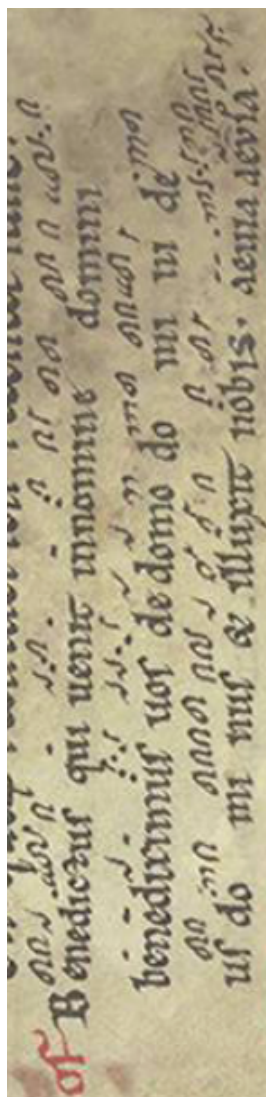 of Benedictus qui uenit innomine domini
benediximus uos de domo do mi ni de
us do mi nus & illuxit nobis. aeuia aeuia.